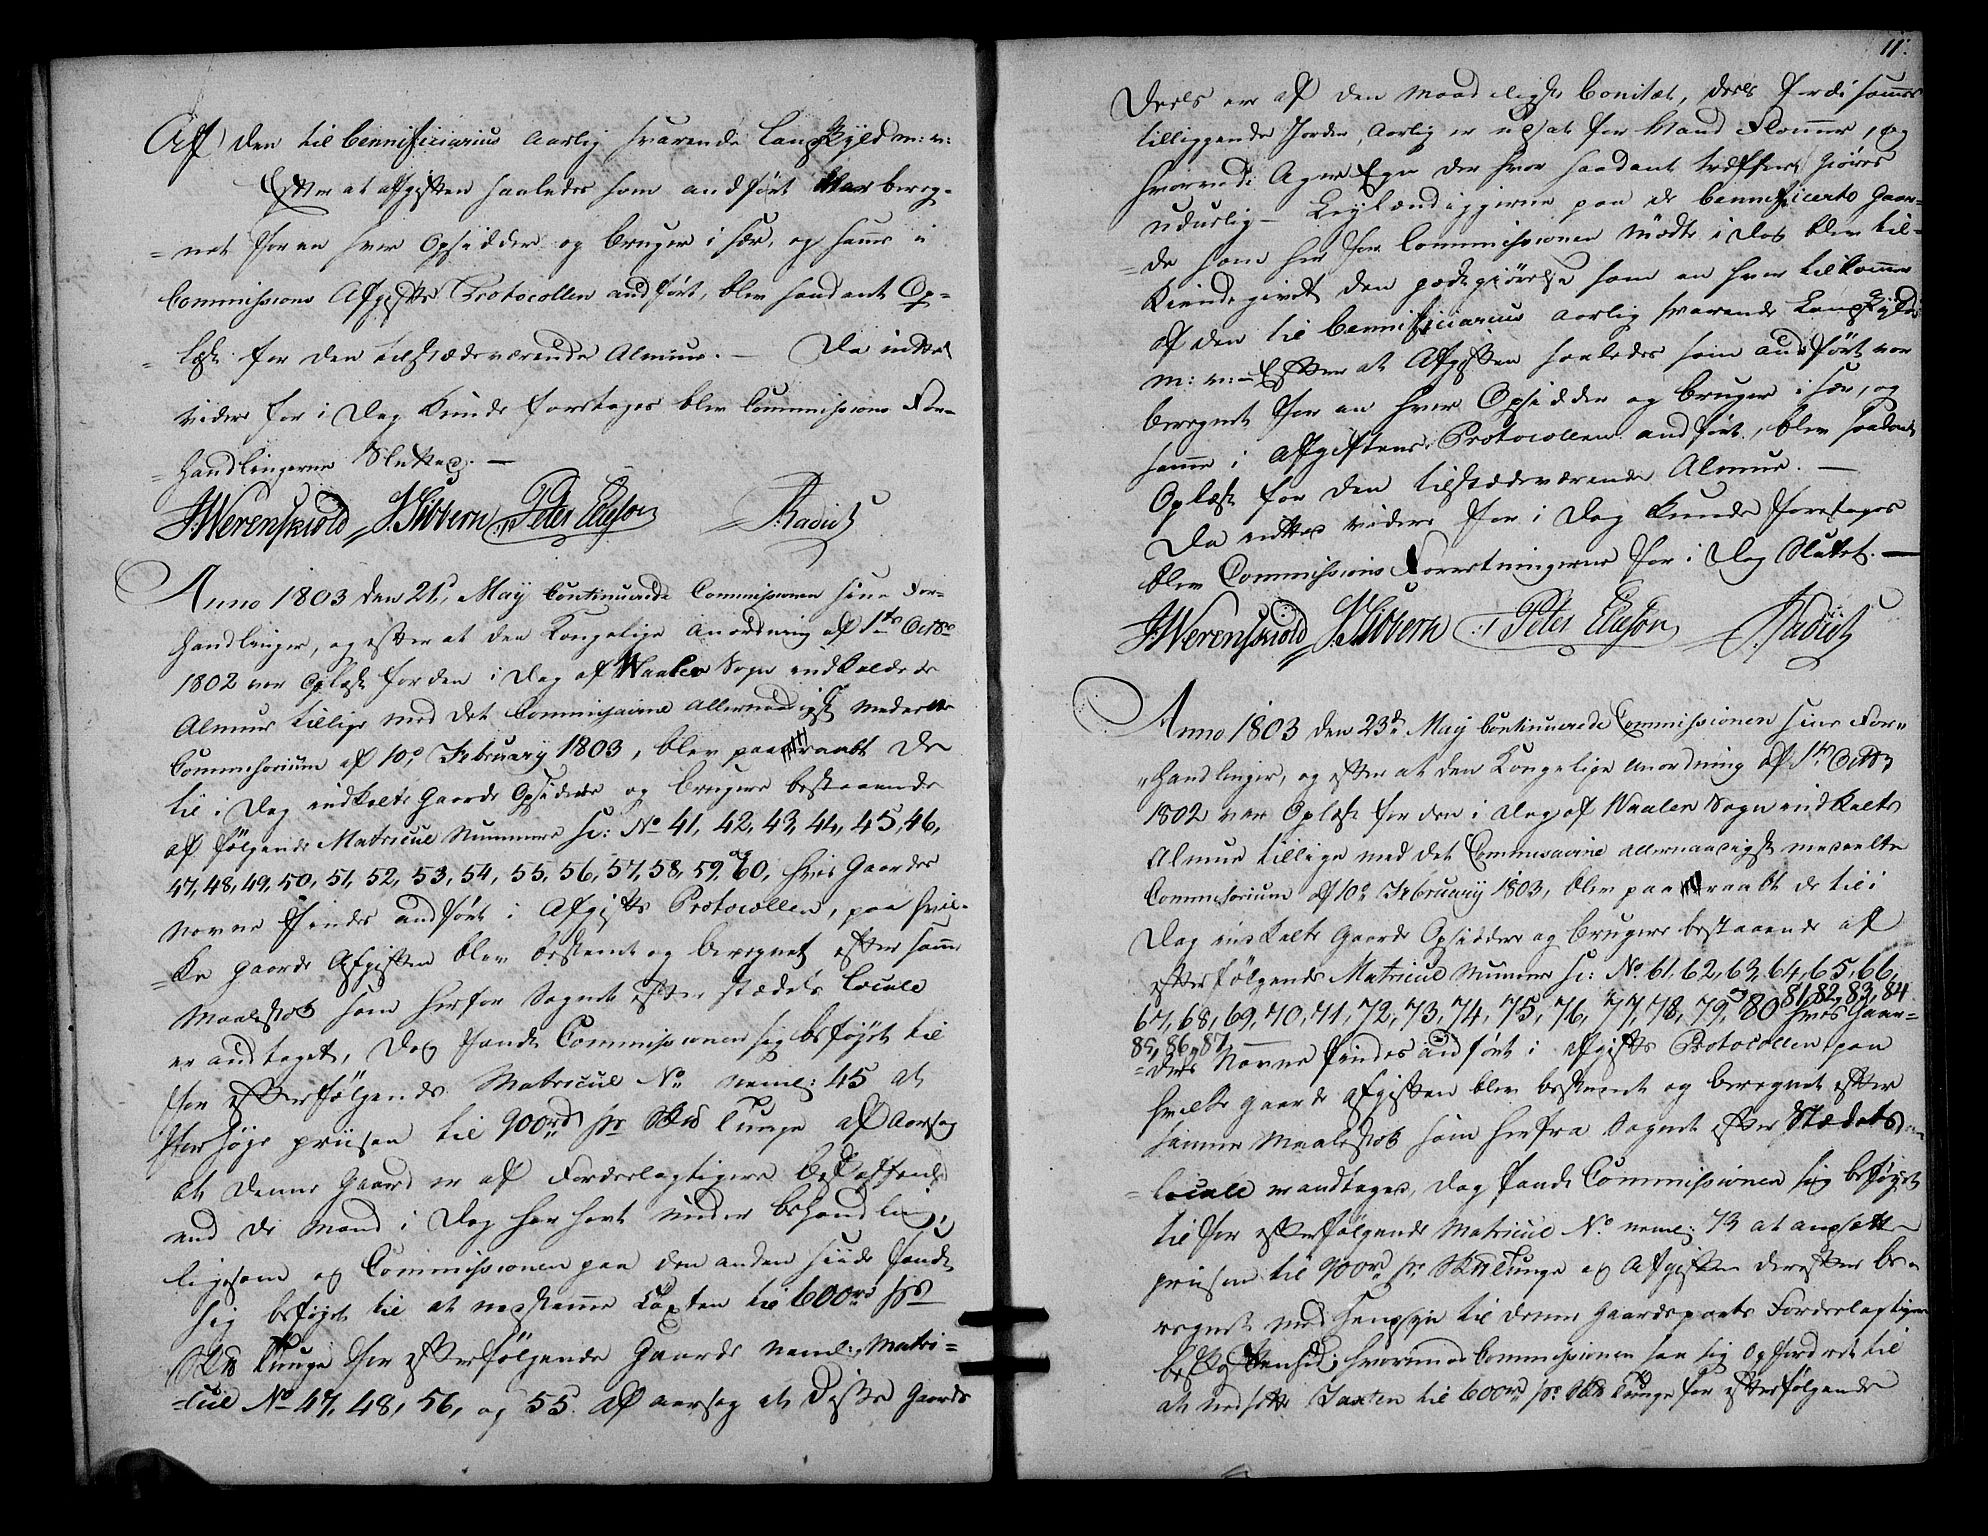 Aff den til Bennificiarius aarlig svarende Landskyld m: v:
Efter at afgiften saaledes som andført var bereg-
=net for en hver Opsidder og Bruger i sær, og samme i
Commissions Afgifts Protocollen andført, blev saadant Op-
=læst for den tilstædeværende Almue. — Da intet
videre for i Dag kunde foretages blev Commissions For-
=handlingerne Sluttet. —
J Werenskiold J. Sibbern Peter Elieson Radich
Anno 1803 den 21de May Continuerede Commissionen sine For-
handlinger, og efter at den Kongelige Anordning af 1ste Octbr
1802 var Oplæst for den i Dag af Waaler Sogn indkaldede
Almue tillige med det Commissairne allernaadigst meddeelte
Commissorium af 10de February 1803, blev paaraabt de
til i Dag indkalte Gaarde Opsiddere og Brugere bestaaende
af følgende Matricul Nummere sc: No 41, 42, 43, 44, 45, 46,
47, 48, 49, 50, 51, 52, 53, 54, 55, 56, 57, 58, 59 og 60, hvis Gaardes
Navne findes andført i Afgifts Protocollen, paa hvil-
=ke Gaarde Afgiften blev bestemt og beregnet efter samme
Maalestok som herfor Sognet efter stædets Locale
er andtaget, dog fandt Commissionen sig beføyet til
for efterfølgende Matricul No neml: 45 at
forhøye priisen til 900rd pr Skd Tunge af Aarsag
at denne Gaard er af Fordeelagtigere Beskaffenhed
end de mand i Dag har havt under behandling,
ligesom og Commissionen paa den anden siide fandt
sig beføyet til at nedstemme Taxten til 600rd pr
Skd Tunge for efterfølgende Gaarde neml: Matri-
=cul No 47, 48, 56, og 55 af aarsag at disse Gaarde
11.
Deels er af den maadeligste Bonitæt, deels fordi sammes
tilliggende Jorder, aarlig er udsat for Vand Flommer, og
hvorende Ager Eyn der hvor saadant træffer giøres
udueelig — Leylændingerne paa de Bennificerte Gaar-
=de som her for Commissionen mødte i Dag blev til-
kiendegivet den godtgiørelse som en hver tilkommer
af den til Bennificiarius aarlig svarende Landskyld
m: v: — Efter at Afgiften saaledes som andført var
beregnet for en hver Opsidder og Bruger i sær, og
samme i Afgiftens Protocollen andført, blev saadant
Oplæst for den tilstædeværende Almue. —
Da intet videre for i Dag kunde foretages
blev Commissions Forretningerne for i Dag Sluttet. —
J Werenskiold J. Sibbern Peter Elieson Radich
Anno 1803 den 23de May Continuerede Commissionen sine For-
=handlinger, og efter at den Kongelige Anordning af 1ste Octbr
1802 var Oplæst for den i Dag af Waaler Sogn indkalte
Almue tillige med det Commissairne allernaadigst meddeelte
Commissorium af 10de February 1803, blev paaraabt de til i
Dag indkalte Gaarde Opsiddere og Brugere bestaaende af
efterfølgende Matricul Nummere sc: No 61, 62, 63, 64, 65, 66,
67, 68, 69, 70, 71, 72, 73, 74, 75, 76, 77, 78, 79, og 80 81, 82, 83, 84
85, 86, 87 hvis Gaar-
=ders Navne findes andført i Afgifts Protocollen paa
hvilke Gaarde Afgiften blev bestemt og beregnet efter
samme Maalestok som herfra Sognet efter Stædets
=Locale er andtaget, dog fandt Commissionen sig beføyet
til for efterfølgende Matricul No neml: 73 at andsætte
priisen til 900rd pr Skd Tunge og Afgiften derefter be-
regnet med Hensyn til denne Gaardeparts Fordeelagtigere
beskaffenhed; hvorimod Commissionen saa sig Opfordret til
at nedsætte Taxten til 600rd pr Skd Tunge for efterfølgende